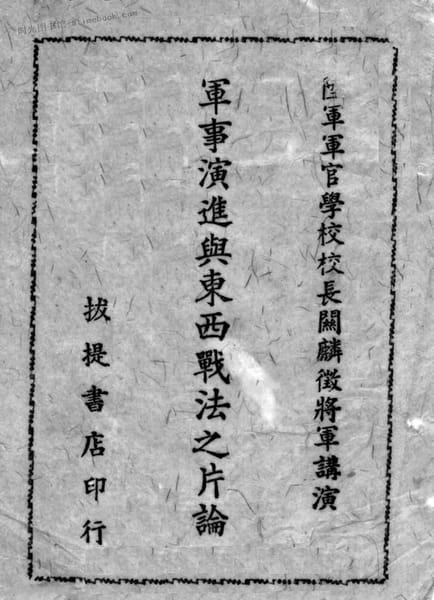 陸軍軍官學校校長關麟徵將軍講演
軍事演進與東西戰法之片論
拔提書店印行